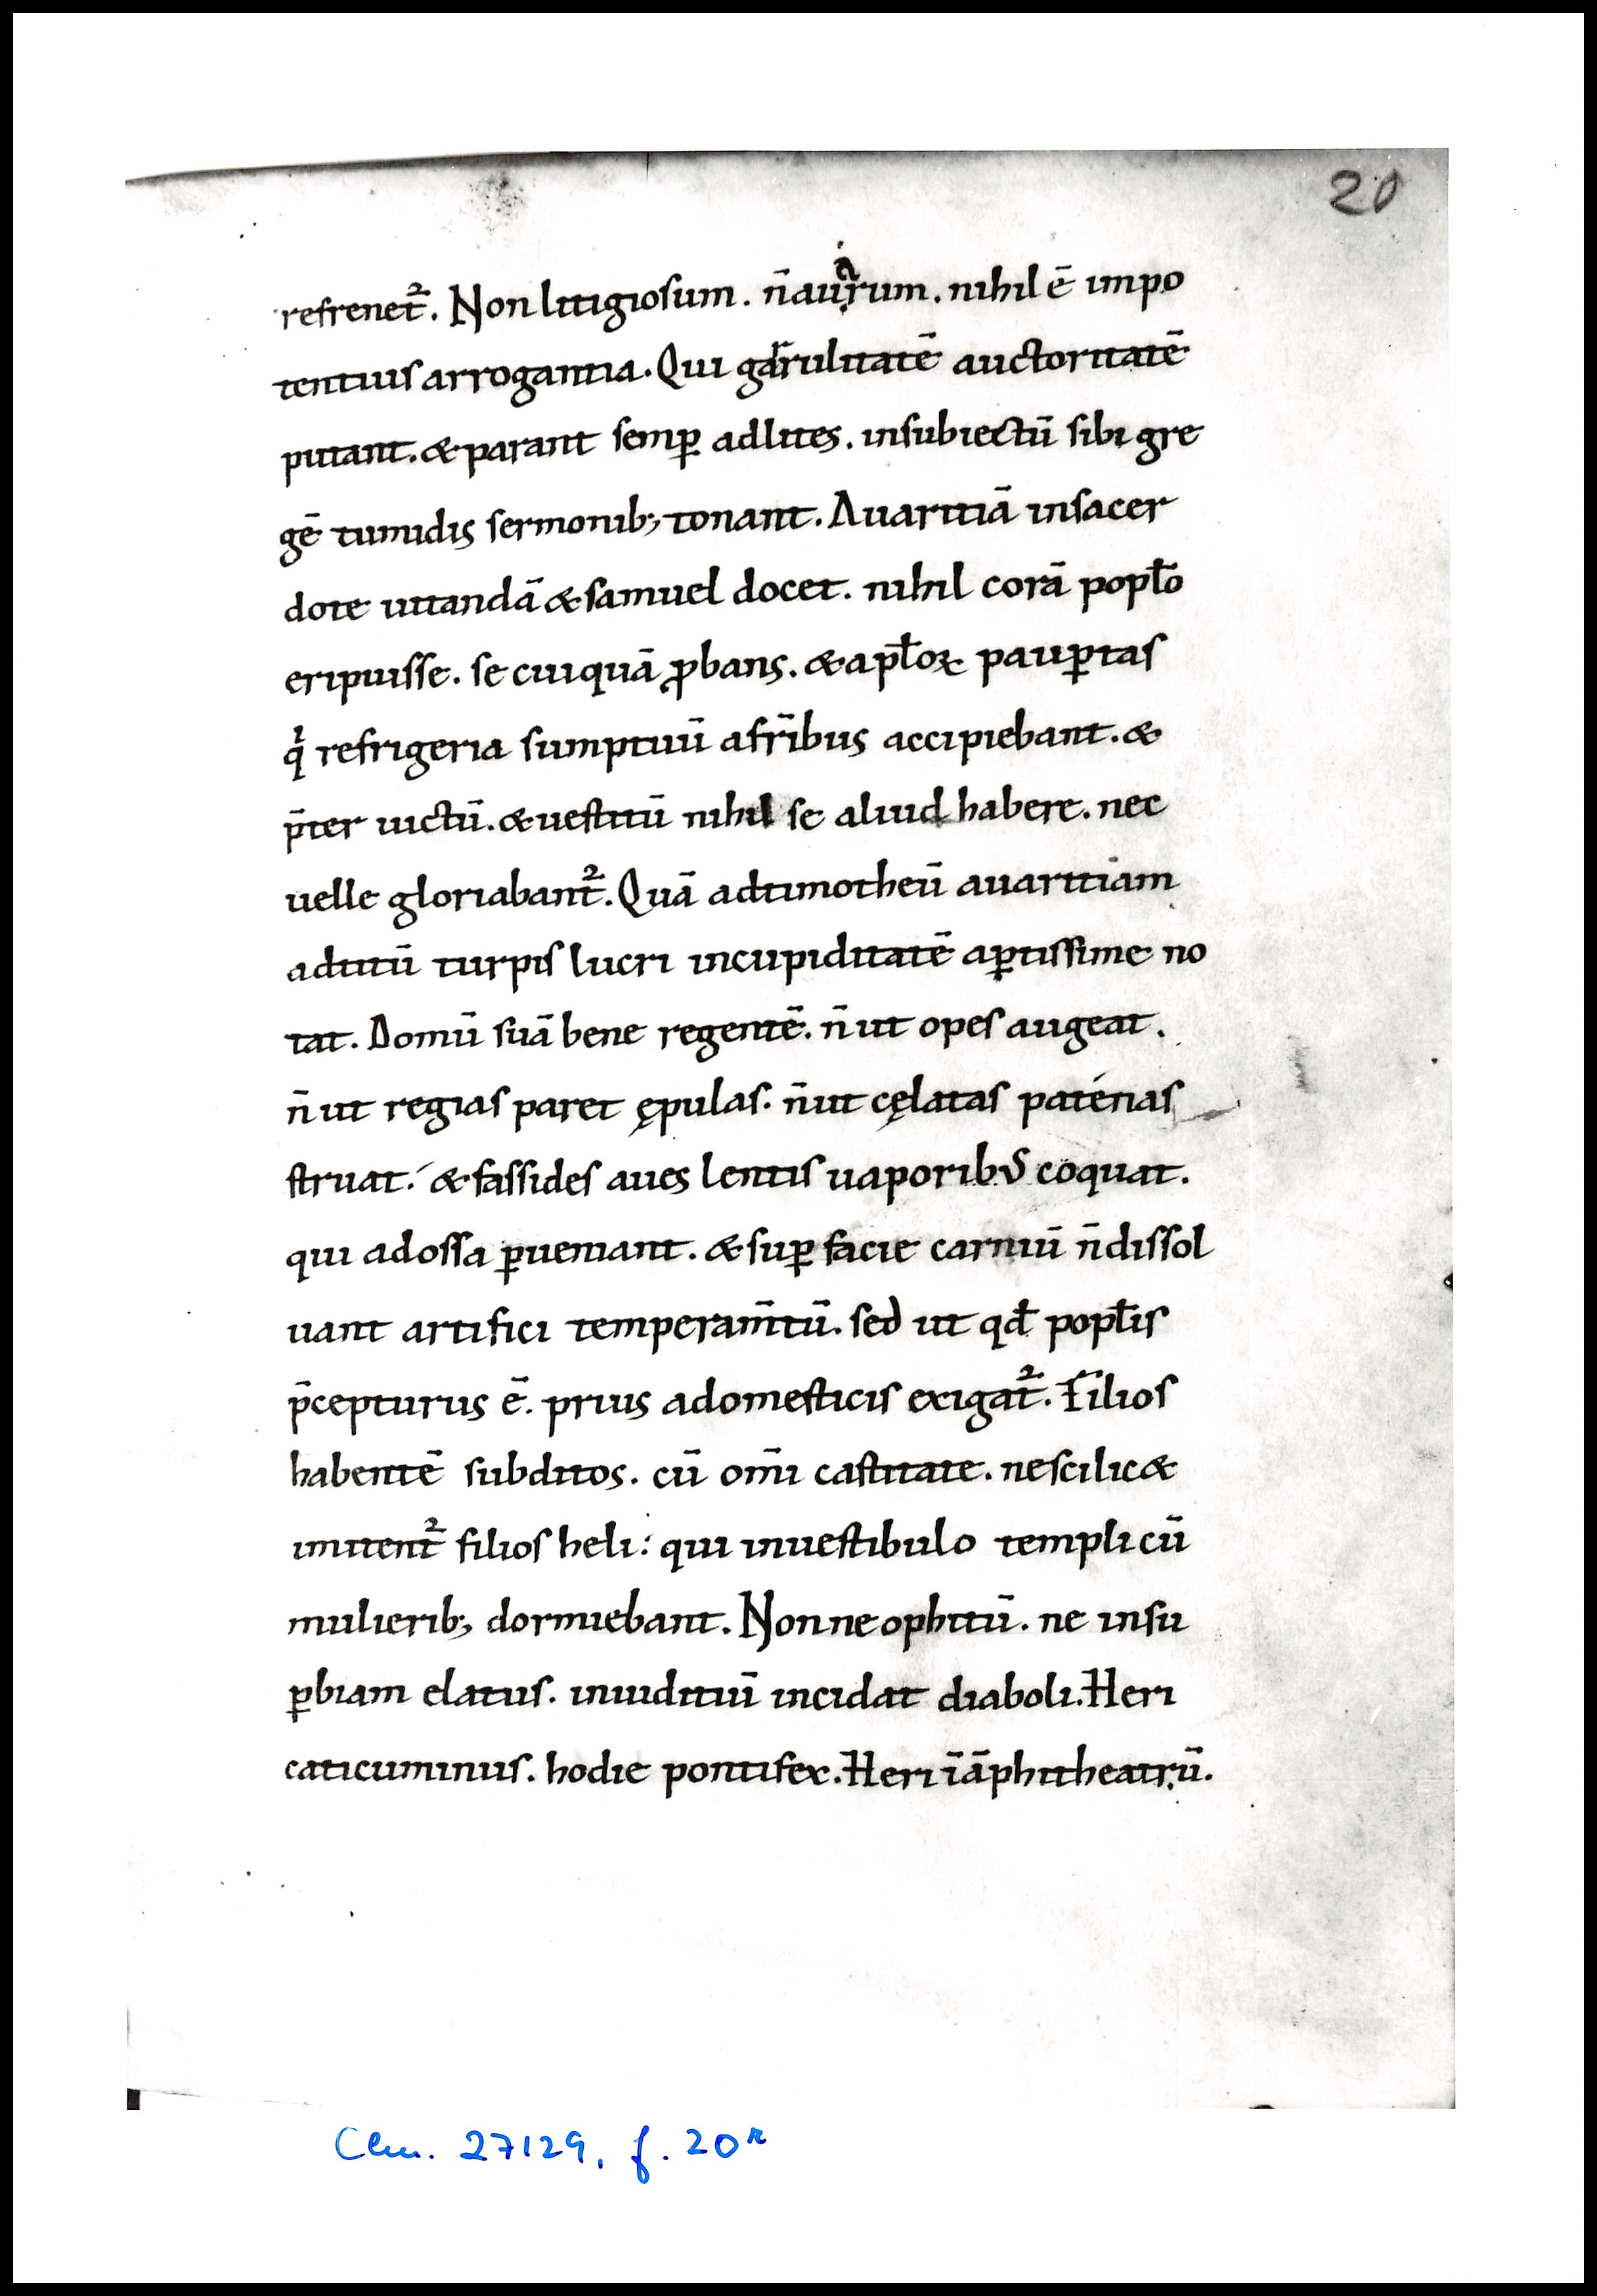 20
refrenet᷑. Non litigiosum. n̄ auarum. nihil ē impo
tentius arrogantia. Qui garrulitatē auctoritatē
putant. & parant semꝑ adlites. insubiectū sibi gre
gē tumidis sermonib; tonant. Auaritiā insacer
dote uitandā & samuel docet. nihil corā popl̄o
eripuisse. se cuiquā ꝓbans. & apl̄oꝝ pauꝑtas
qͥ refrigeria sumptuū afr̄ibus accipiebant. &
p̄ter uictū. & uestitū nihil se aliud habere. nec
uelle gloriabant᷑. Quā adtimotheū auaritiam
adtitū turpis lucri incupiditatē aꝑtissime no
tat. Domū suā bene regentē. n̄ ut opes augeat.
n̄ ut regias paret ępulas. n̄ ut cęlatas paténas
struat. & fassides aues lentis uaporibus coquat.
qui adossa ꝑueniant. & suꝑ facie carniū n̄ dissol
uant artifici temperam̄tū. sed ut qđ popl̄is
p̄cepturus ē. prius adomesticis exigat᷑. Filios
habentē subditos. cū om̄i castitate. nescilic&
imitent᷑ filios heli: qui inuestibulo templi cū
mulierib; dormiebant. Non neophitū. ne insu
ꝑbiam elatus. iniuditiū incidat diaboli. Heri
caticuminus. hodie pontifex. Heri īāphitheatrū.
Clm. 27129, f. 20r